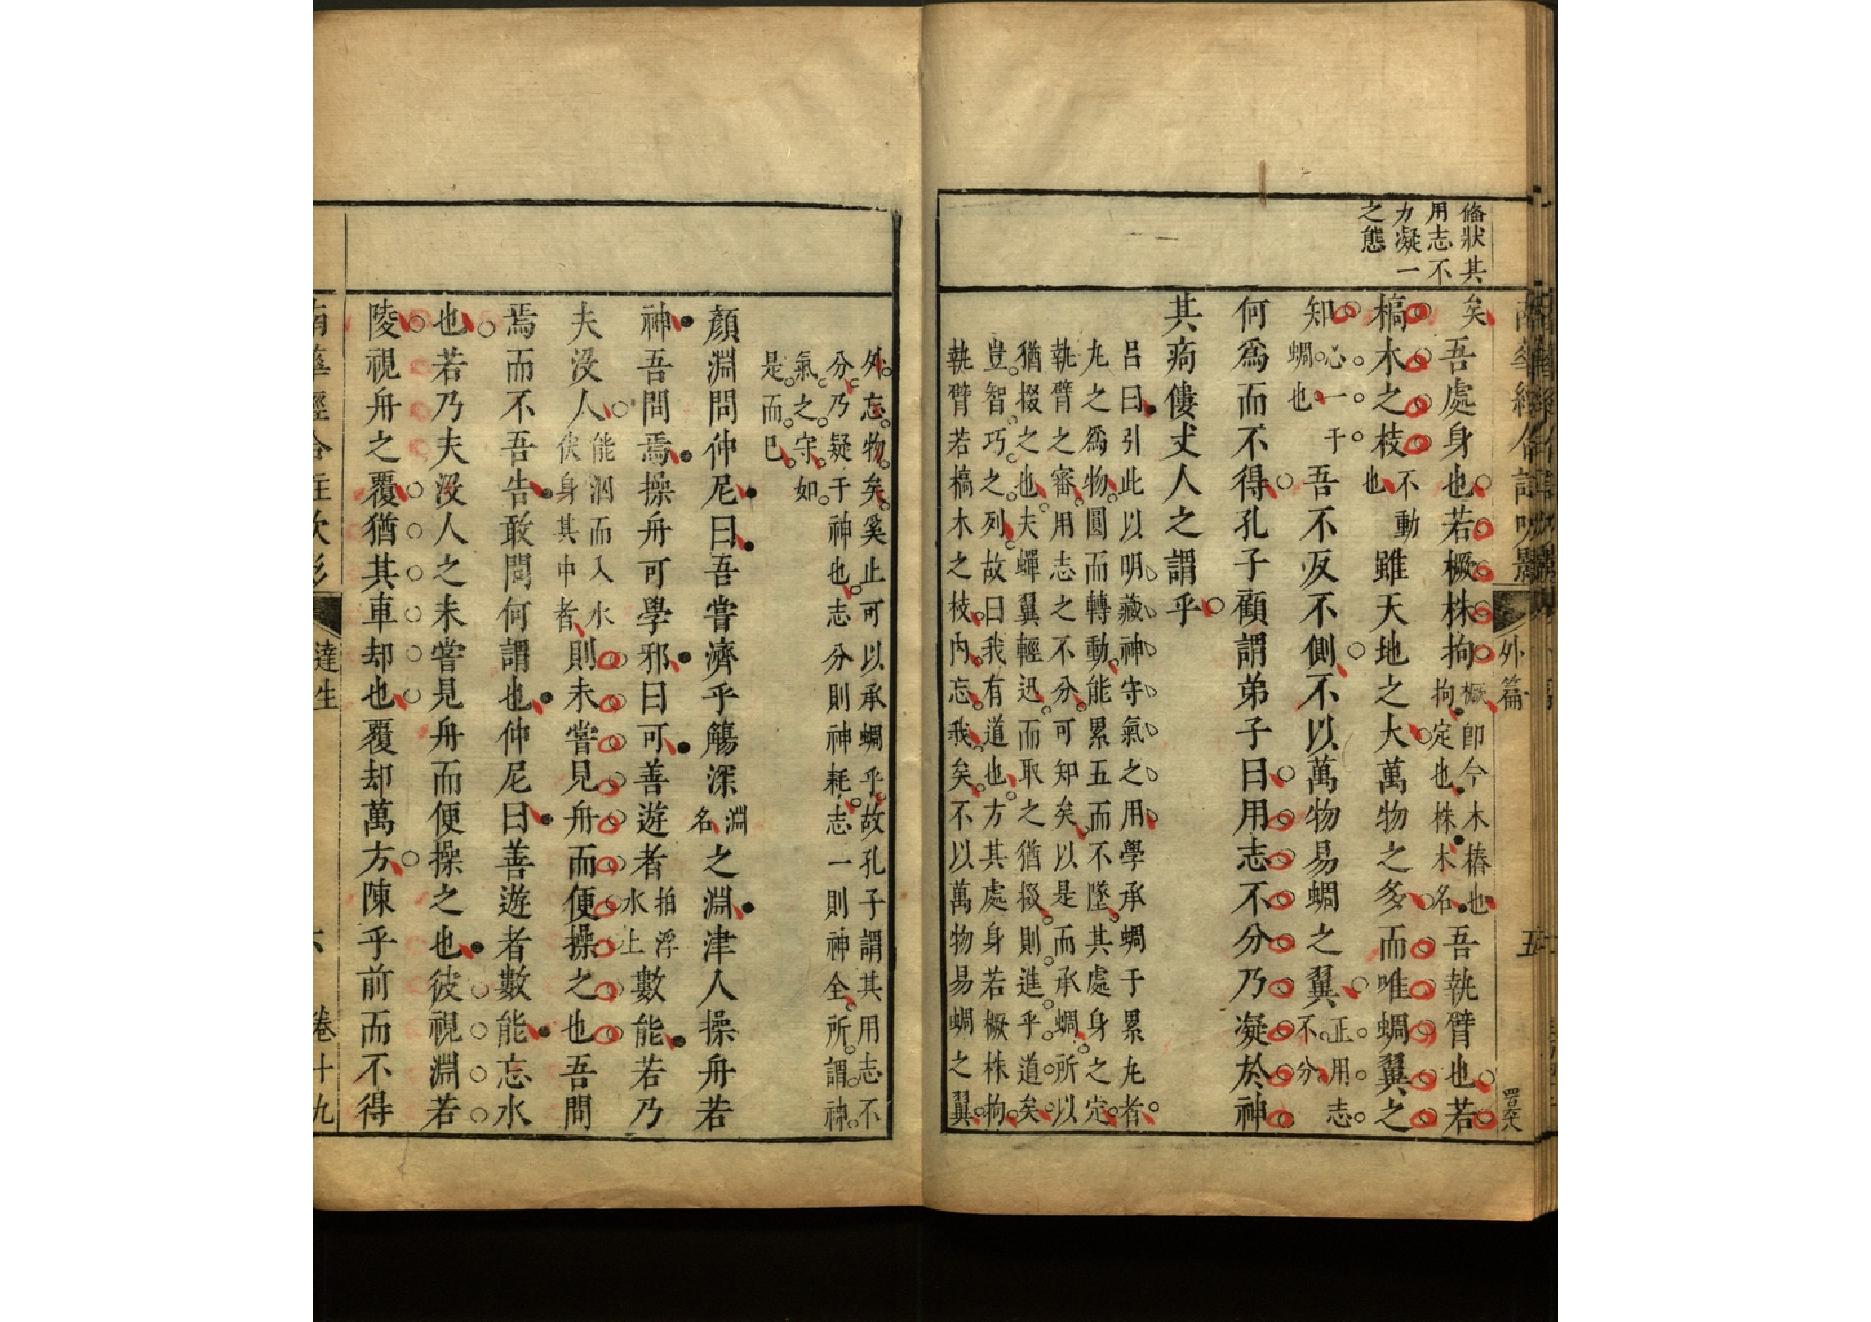 脩狀其
用志不
力凝一
之態
外篇
五
矣吾處身也若橛株拘橛即今木樁也拘定也株木名吾執臂也若
槁木之枝不動也雖天地之大萬物之多而唯蜩翼之
知心一于蜩也吾不反不側不以萬物易蜩之翼正用志不分
何為而不得孔子顧謂弟子曰用志不分乃凝於神
其痀僂丈人之謂乎
呂曰引此以明藏神守氣之用學承蜩于累丸者
丸之為物圓而轉動能累五而不墜其處身之定
執臂之審用志之不分可知矣以是而承蜩所以
猶掇之也夫蟬翼輕迅而取之猶掇則進乎道矣
豈智巧之列故曰我有道也方其處身若橛株拘
執臂若槁木之枝內忘我矣不以萬物易蜩之翼
外忘物矣奚止可以承蜩乎故孔子謂其用志不
分乃疑于神也志分則神耗志一則神全所謂神
氣之守如
是而已
顏淵問仲尼曰吾嘗濟乎觴深淵名之淵津人操舟若
神吾問焉操舟可學邪曰可善遊者拍浮水上數能若乃
夫沒人能泅而入水俟身其中者則未嘗見舟而便操之也吾問
焉而不吾告敢問何謂也仲尼曰善遊者數能忘水
也若乃夫沒人之未嘗見舟而便操之也彼視淵若
陵視舟之覆猶其車却也覆却萬方陳乎前而不得
南華經合註吹影
達生
六
卷十九